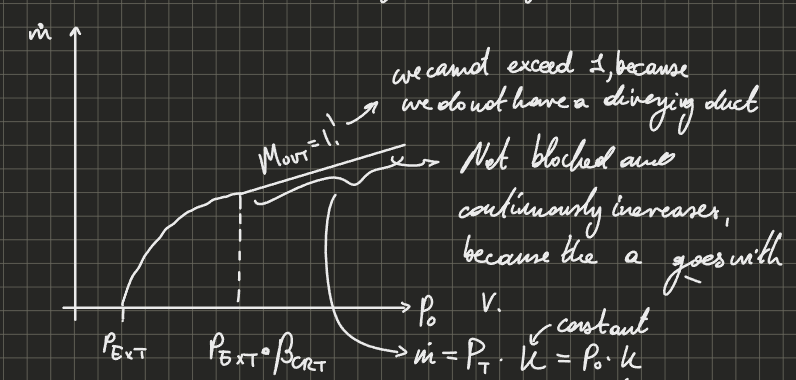 ṁ
we cannot exceed 1, because
we do not have a diverging duct
M_OUT = 1!
Not blocked and
continuously increases,
because the a goes with
V.
P₀
constant
P_EXT
P_EXT • β_CRT
ṁ = P_T · K = P₀ · K